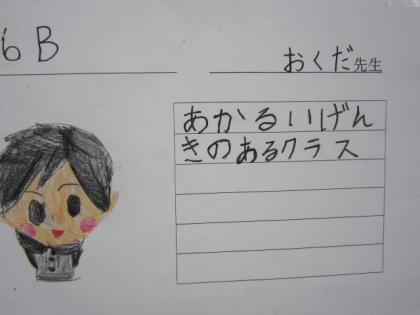 6B
おくだ先生
あかるいげん
きのあるクラス